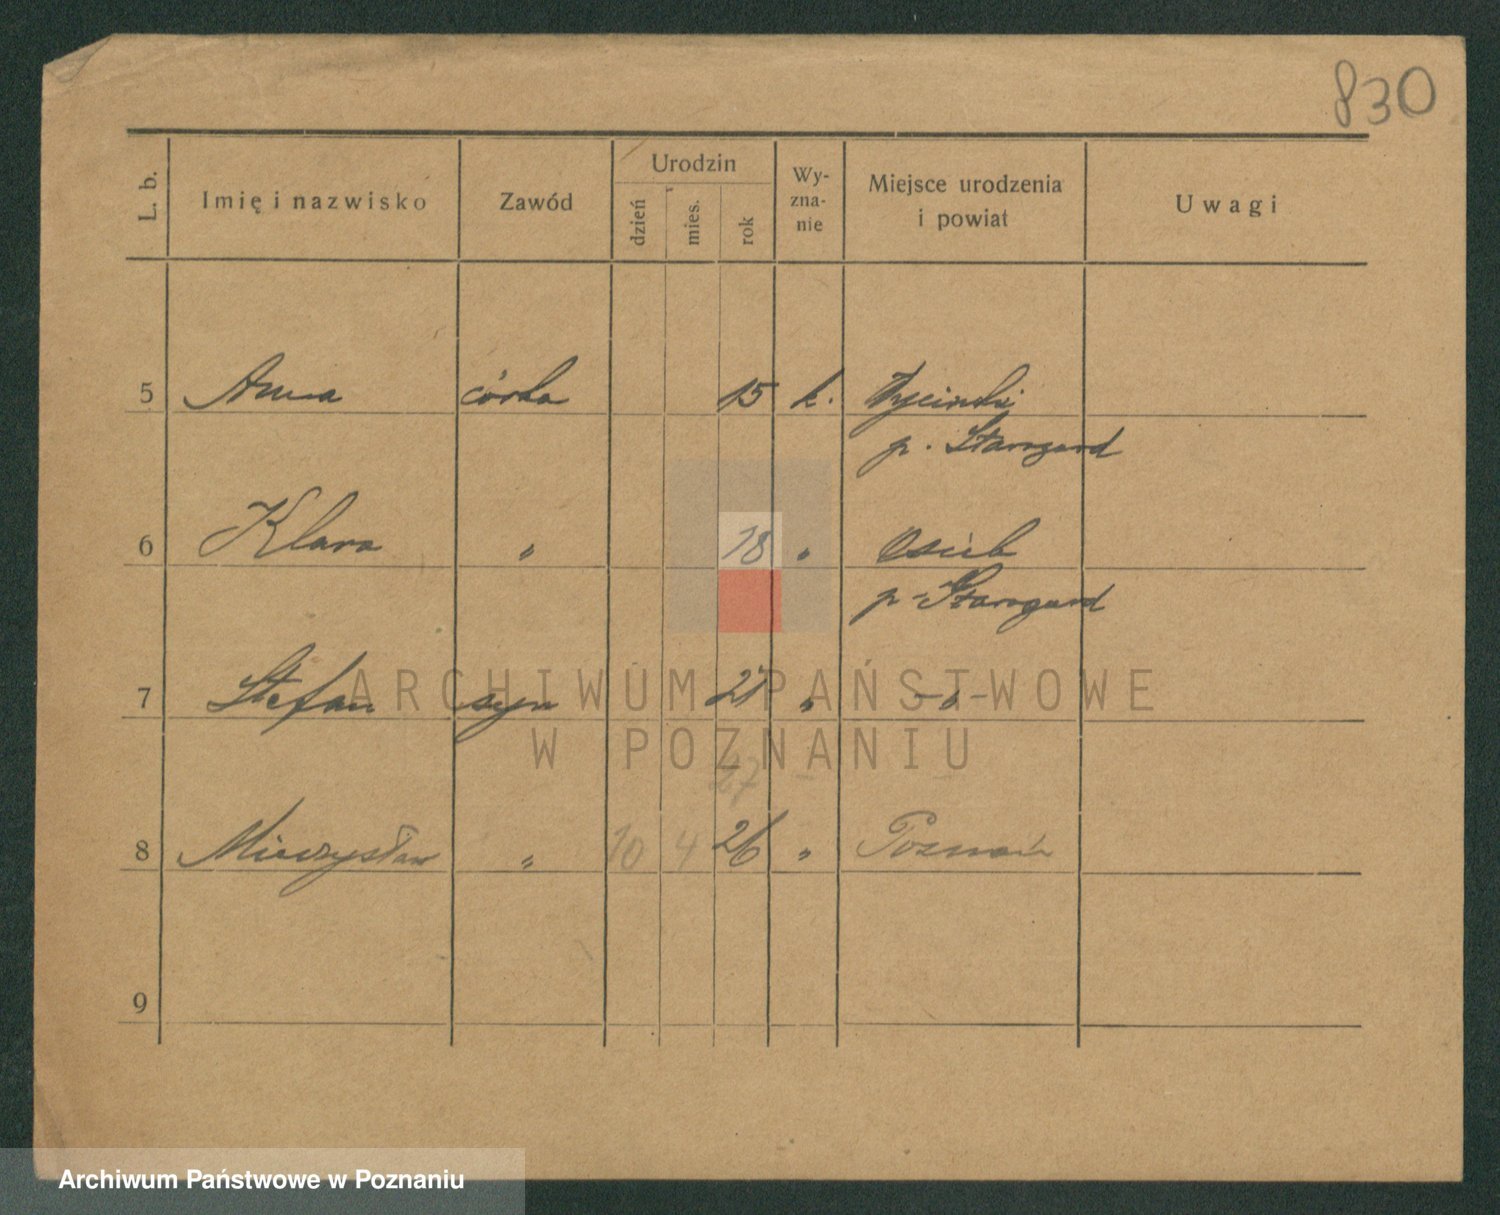 830
L. b. Imię i nazwisko Zawód Urodzin dzień mies. rok Wy-zna-nie Miejsce urodzenia i powiat Uwagi
5 Anna córka 15 k.
p. Starogard
6 Klara " 18 " Osiek
p. Starogard
7 Stefan syn 21 " -"-
ARCHIWUM PAŃSTWOWE
W POZNANIU
27
8 Mieczysław " 10 4 26 " Poznań
9
Archiwum Państwowe w Poznaniu